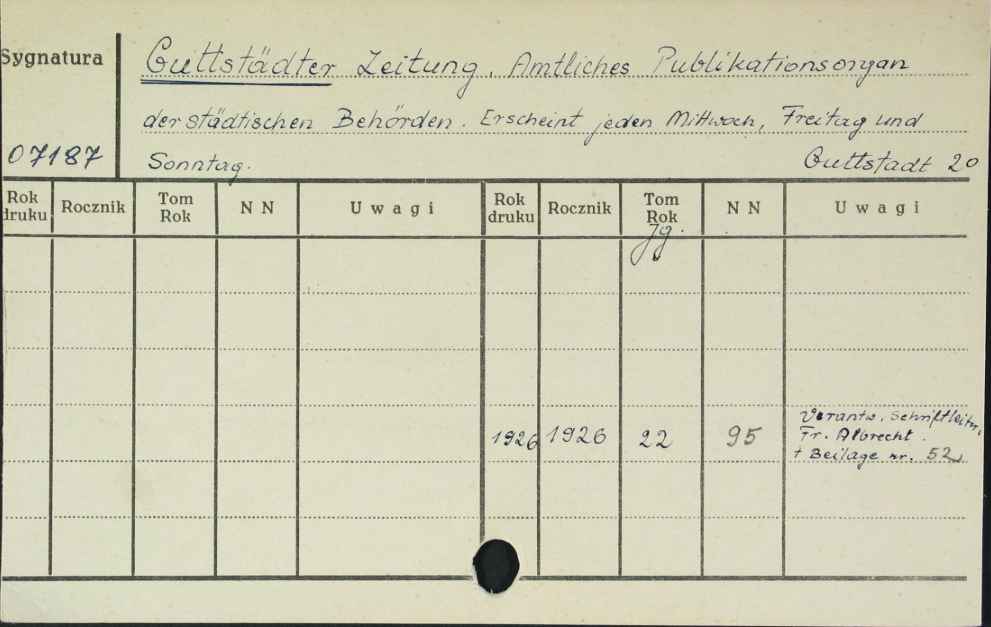 Sygnatura
Guttstädter Zeitung. Amtliches Publikationsorgan
der städtischen Behörden. Erscheint jeden Mittwoch, Freitag und
07187 Sonntag. Guttstadt 20
Rok druku Rocznik Tom Rok N N Uwagi Rok druku Rocznik Tom Rok N N Uwagi
Jg.
1926 1926 22 95 Verantw. Schriftleitr.
Fr. Albrecht.
+ Beilage nr. 52